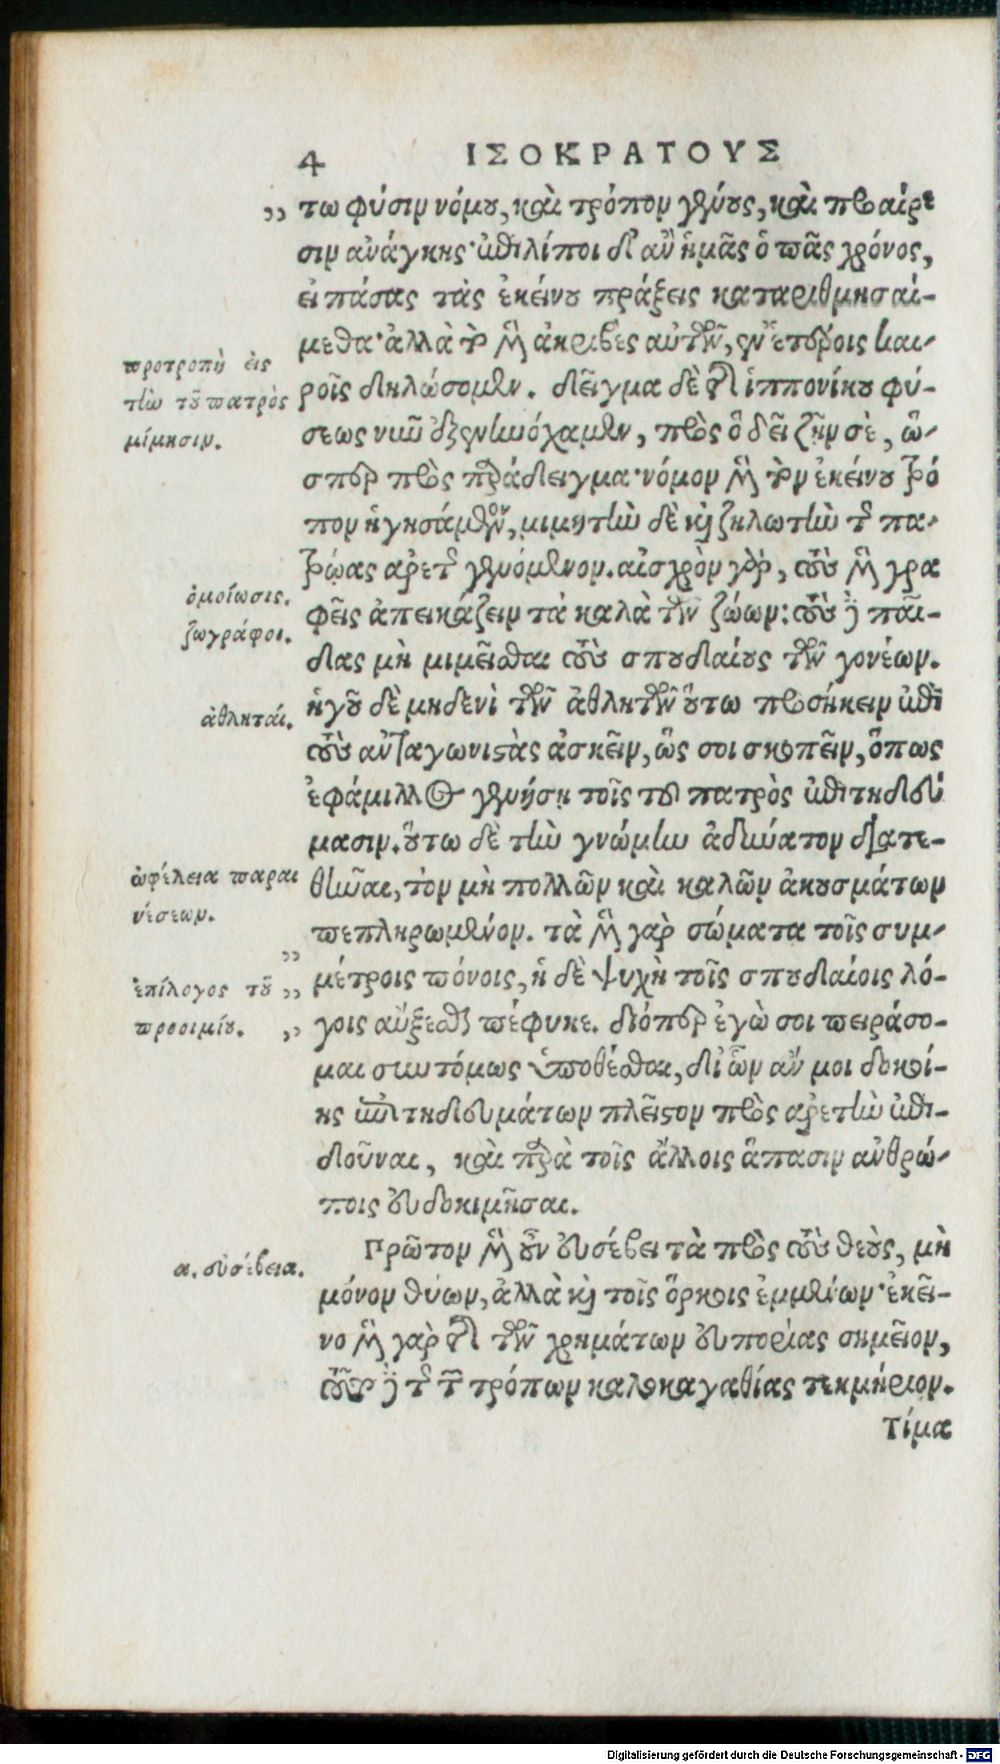 4 ΙΣΟΚΡΑΤΟΥΣ
,, τω φύσιν νόμου, καὶ τρόπον γένους, καὶ προαίρε
σιν ἀνάγκης· ἐπιλίποι δ' ἂν ἡμᾶς ὁ πᾶς χρόνος,
εἰ πάσας τὰς ἐκείνου πράξεις καταριθμησαί-
μεθα· ἀλλὰ τὸ μὲν ἀκριβὲς αὐτῶν, ἐν ἑτέροις και-
ροῖς δηλώσομεν. δεῖγμα δὲ τῆς ἱππονίκου φύ-
σεως νῦν ἐξενηνόχαμεν, πρὸς ὃ δεῖ ζῆν σὲ, ὥ-
σπερ πρὸς παράδειγμα· νόμον μὲν τὸν ἐκείνου τρό
πον ἡγησάμενον, μιμητὴν δὲ καὶ ζηλωτὴν τῆς πα-
τρῴας ἀρετῆς γενόμενον. αἰσχρὸν γὰρ, τοὺς μὲν γρα
φεῖς ἀπεικάζειν τὰ καλὰ τῶν ζώων: τοὺς δὲ παῖ-
δας μὴ μιμεῖσθαι τοὺς σπουδαίους τῶν γονέων.
ἡγοῦ δὲ μηδενὶ τῶν ἀθλητῶν οὕτω προσήκειν ἐπὶ
τοὺς ἀνταγωνιστὰς ἀσκεῖν, ὥς σοι σκοπεῖν, ὅπως
ἐφάμιλλος γενήσῃ τοῖς τοῦ πατρὸς ἐπιτηδεύ
μασιν. οὕτω δὲ τὴν γνώμην ἀδύνατον διατε-
θῆναι, τὸν μὴ πολλῶν καὶ καλῶν ἀκουσμάτων
πεπληρωμένον. τὰ μὲν γὰρ σώματα τοῖς συμ-
,, μέτροις πόνοις, ἡ δὲ ψυχὴ τοῖς σπουδαίοις λό-
,, γοις αὔξεσθαι πέφυκε. διόπερ ἐγώ σοι πειράσο-
,, μαι συντόμως ὑποθέσθαι, δι' ὧν ἄν μοι δοκοί-
ης ἐπιτηδευμάτων πλεῖστον πρὸς ἀρετὴν ἐπι-
δοῦναι, καὶ παρὰ τοῖς ἄλλοις ἅπασιν ἀνθρώ-
ποις εὐδοκιμῆσαι.
Πρῶτον μὲν οὖν εὐσέβει τὰ πρὸς τοὺς θεοὺς, μὴ
μόνον θύων, ἀλλὰ καὶ τοῖς ὅρκοις ἐμμένων· ἐκεῖ-
νο μὲν γὰρ τῆς τῶν χρημάτων εὐπορίας σημεῖον,
τοῦτο δὲ τῆς τῶν τρόπων καλοκαγαθίας τεκμήριον.
Τίμα
προτροπὴ εἰς
τὴν τοῦ πατρὸς
μίμησιν.
ὁμοίωσις.
ζωγράφοι.
ἀθληταί.
ὠφέλεια παραι
νέσεων.
ἐπίλογος τοῦ
προοιμίου.
α. εὐσέβεια.
Digitalisierung gefördert durch die Deutsche Forschungsgemeinschaft - DFG